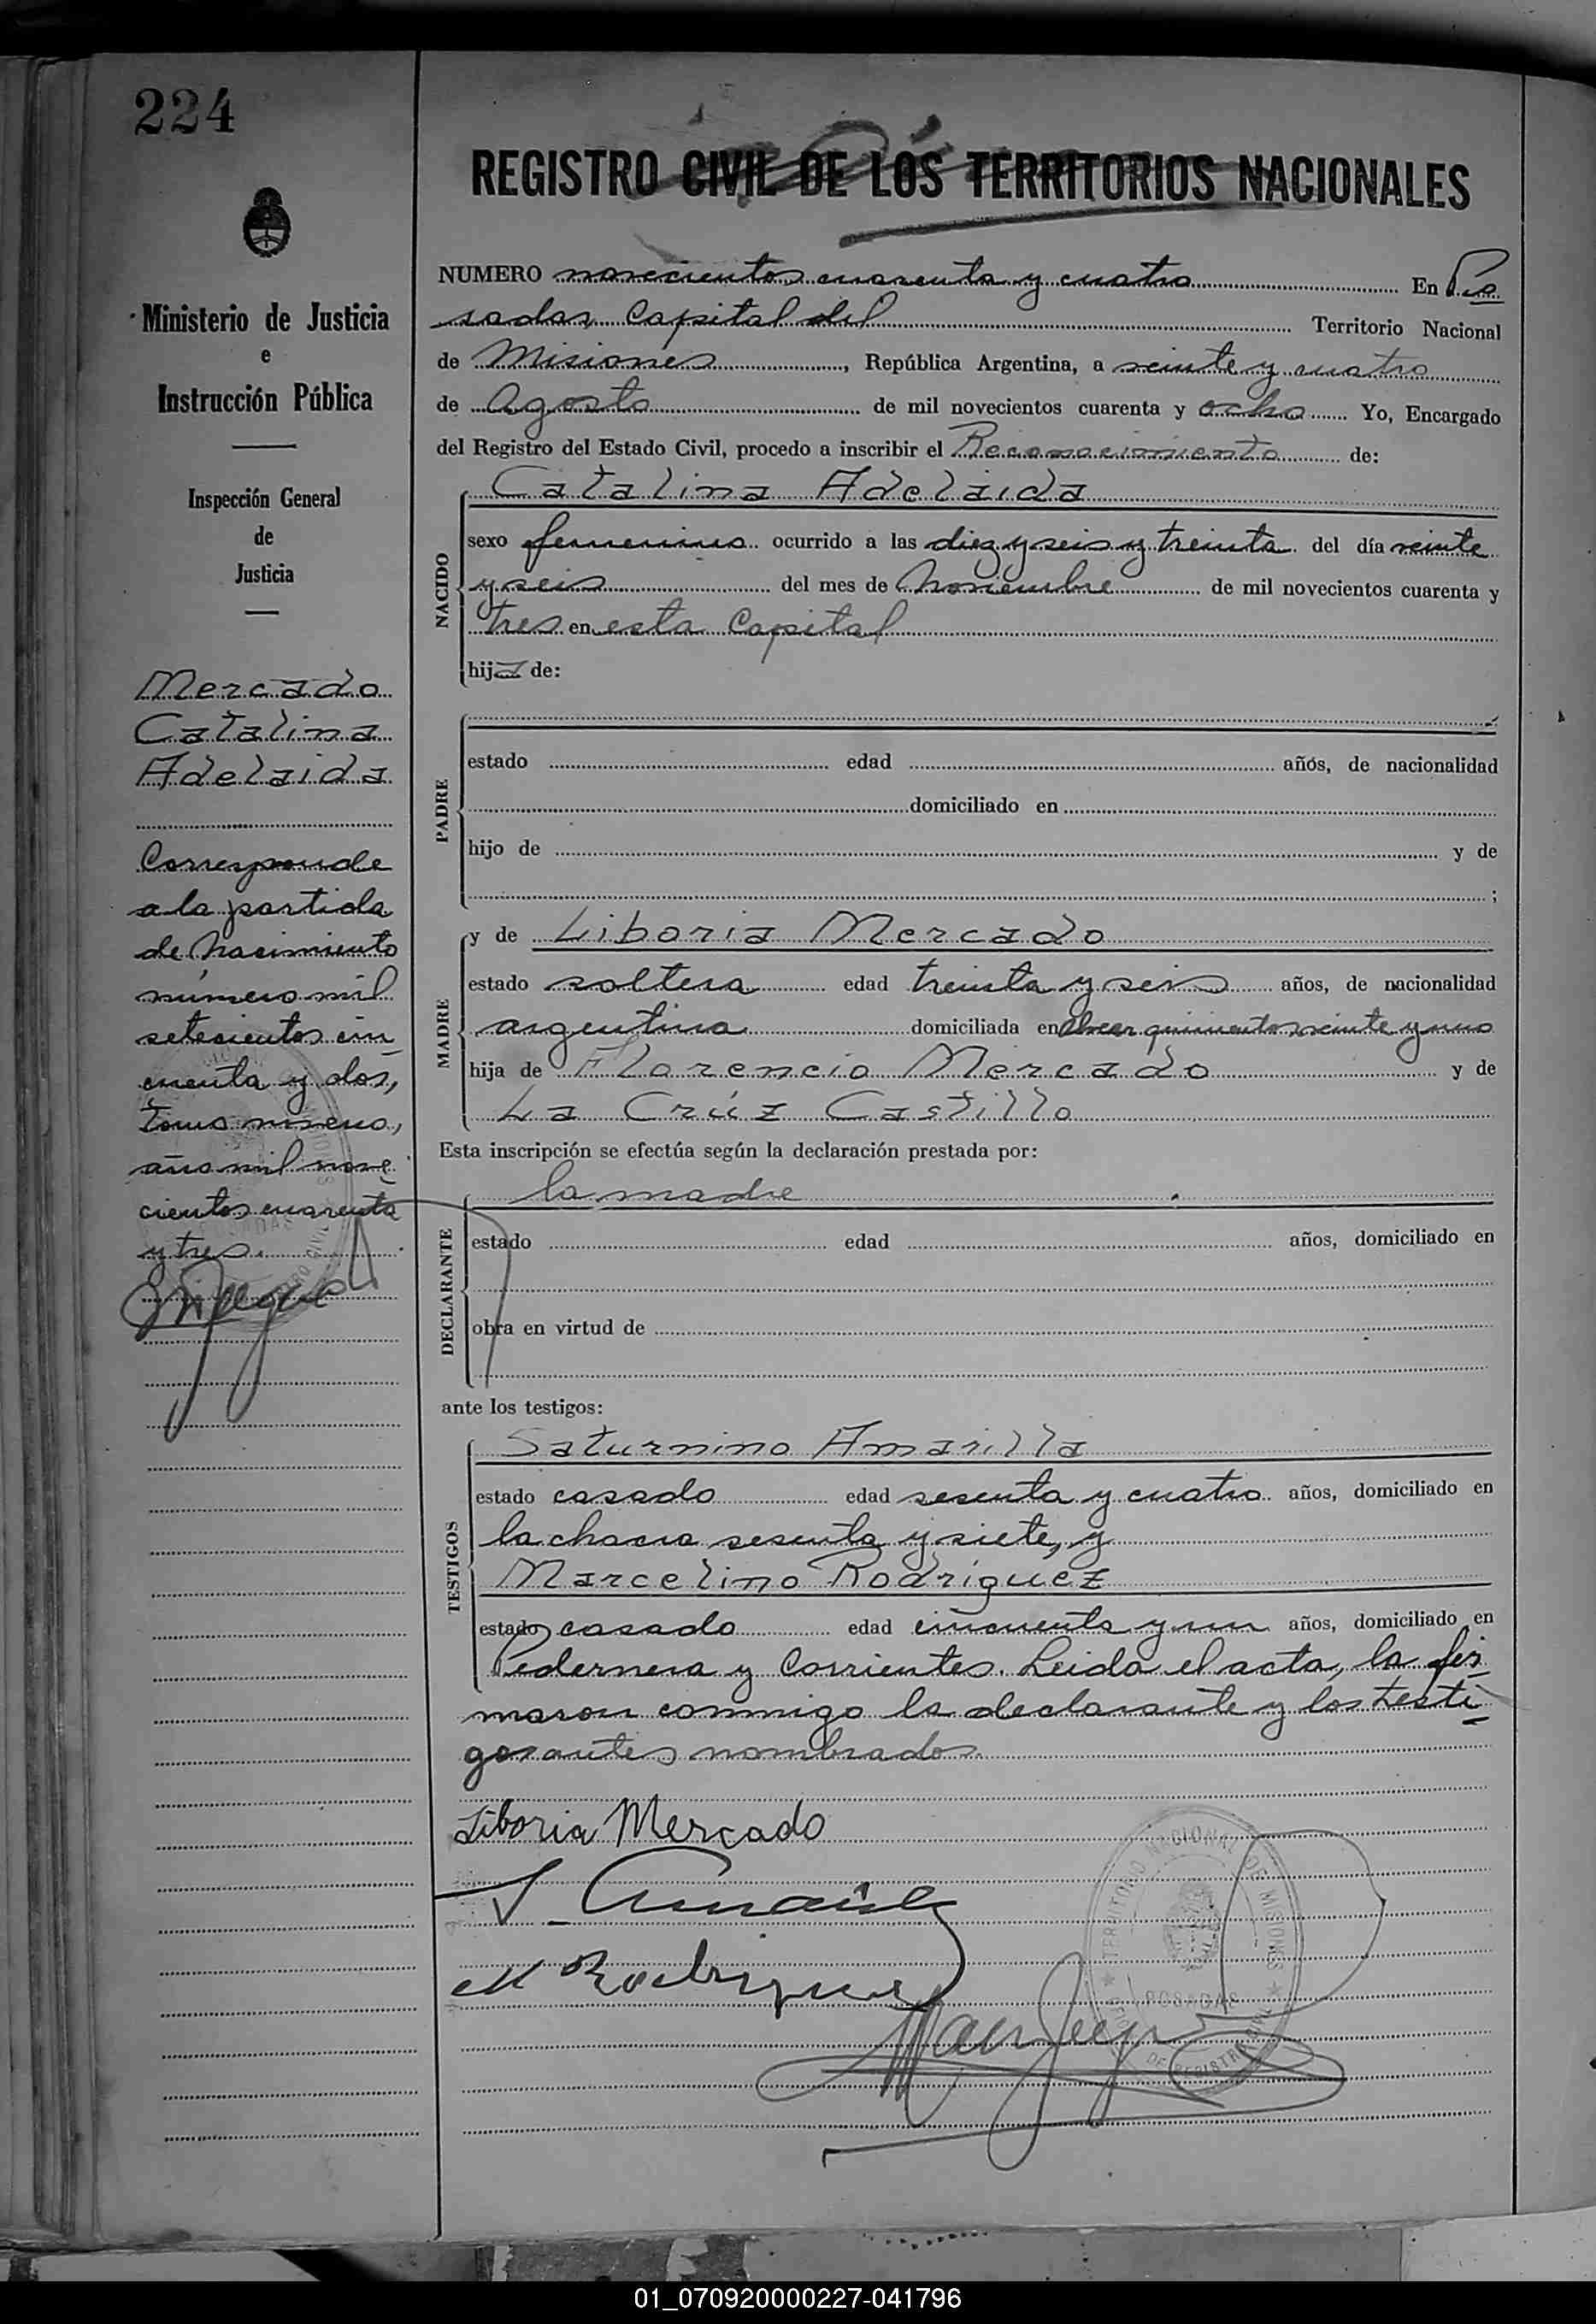 224
Ministerio de Justicia
e
Instrucción Pública
Inspección General
de
Justicia
Mercado
Catalina
Adelaida
Corresponde
a la partida
de Nacimiento
número mil
setecientos cin
cuenta y dos,
tomo noveno,
año mil nove
cientos cuarenta
y tres.
REGISTRO CIVIL DE LOS TERRITORIOS NACIONALES
NUMERO novecientos cuarenta y cuatro En Po
sadas, Capital del Territorio Nacional
de Misiones, República Argentina, a veinte y cuatro
de Agosto de mil novecientos cuarenta y ocho Yo, Encargado
del Registro del Estado Civil, procedo a inscribir el Reconocimiento de:
NACIDO
Catalina Adelaida
sexo femenino ocurrido a las diez y seis y treinta del día veinte
y seis del mes de Noviembre de mil novecientos cuarenta y
tres en esta Capital
hija de:
PADRE
estado edad años, de nacionalidad
domiciliado en
hijo de y de
;
MADRE
y de Liboria Mercado
estado soltera edad treinta y seis años, de nacionalidad
argentina domiciliada en quinientos veinte y uno
hija de Florencio Mercado y de
La Crúz Castillo
Esta inscripción se efectúa según la declaración prestada por:
DECLARANTE
la madre
estado edad años, domiciliado en
obra en virtud de
ante los testigos:
TESTIGOS
Saturnino Amarilla
estado casado edad sesenta y cuatro años, domiciliado en
la chacra sesenta y siete, y
Marcelino Rodríguez
estado casado edad cincuenta y un años, domiciliado en
Pedernera y Corrientes. Leida el acta, la fir
maron conmigo la declarante y los testi
gos antes nombrados.
Liboria Mercado
S. Amarilla
M Rodriguez
TERRITORIO NACIONAL DE MISIONES
POSADAS
DE REGISTRO CIVIL
01_070920000227-041796